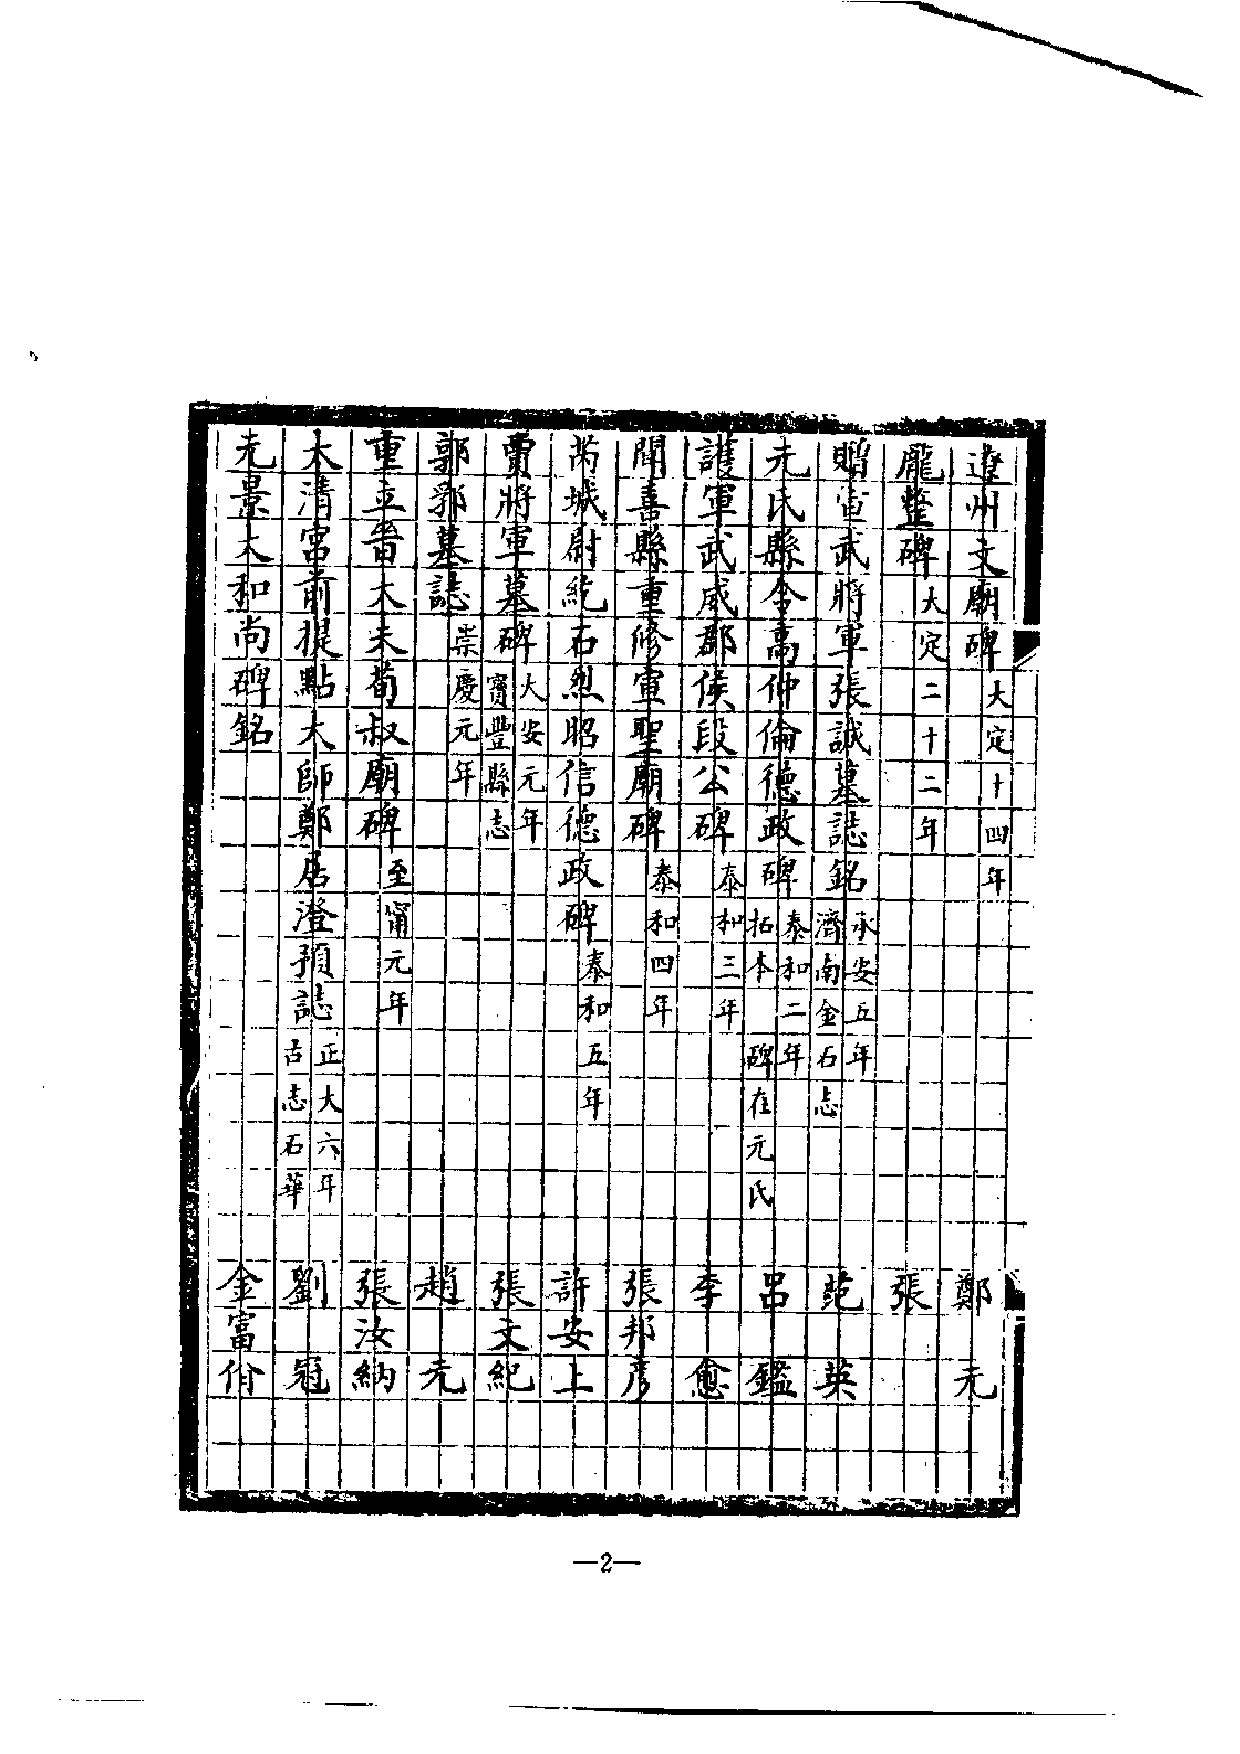 遼州文廟碑 大定十四年 鄭元
龎整碑 大定二十二年 張
贈宣武將軍張誠墓誌銘 承安五年 濟南金石志 范英
元氏縣令高仲倫德政碑 泰和二年 拓本 碑在元氏 呂鑑
護軍武威郡侯段公碑 泰和三年 李愈
聞喜縣重修宣聖廟碑 泰和四年 張邦彥
芮城尉紇石烈昭信德政碑 泰和五年 許安上
賈將軍墓碑 大安元年 寳豐縣志 張文紀
郭郛墓誌 崇慶元年 趙元
重立晉大夫荀叔廟碑 至甯元年 張汝納
太清宮前提點大師鄭居澄預誌 正大六年 古志石華 劉冠
元景大和尚碑銘 金富佾
—2—